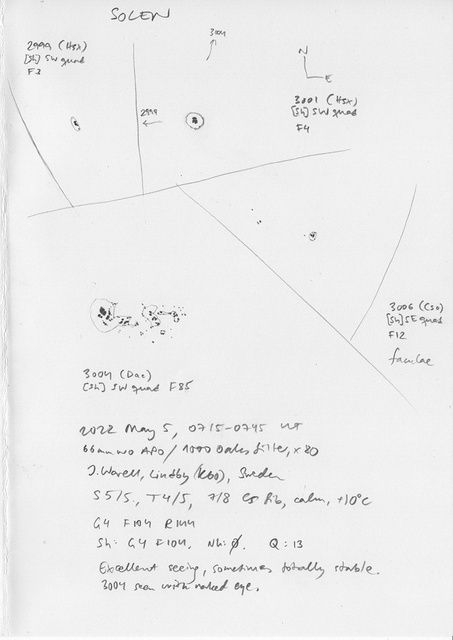 SOLEN
2999 (Hsx)
[Sh] SW quad
F3
3004
N
E
2999
3001 (Hsx)
[Sh] SW quad
F4
3006 (Cso)
[Sh] SE quad
F12
faculae
3004 (Dac)
[Sh] SW quad F85
2022 May 5, 0715-0745 UT
66mm WO APO/1000 Oaks filter, x80
J. Warell, Lindby (K60), Sweden
S 5/5, T 4/5, 7/8 Cs Fib, calm, +10°C
G4 F104 R144
Sh: G4 F104, Nh: Ø. Q: 13
Excellent seeing, sometimes totally stable.
3004 seen with naked eye.